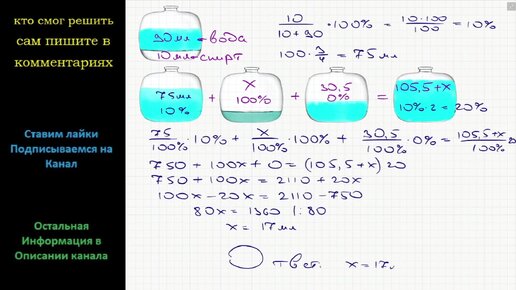 кто смог решить
сам пишите в
комментариях
Ставим лайки
Подписываемся на
Канал
Остальная
Информация в
Описании канала
90мл - вода
10мл - спирт
10/(10+90) · 100% = (10·100)/100 = 10%
100 · 3/4 = 75мл
75мл 10% + x 100% + 30,5 0% = 105,5+x 10%·2 = 20%
75/100% · 10% + x/100% · 100% + 30,5/100% · 0% = (105,5+x)/100%
750 + 100x + 0 = (105,5+x) 20
750 + 100x = 2110 + 20x
100x - 20x = 2110 - 750
80x = 1360 | : 80
x = 17мл
Ответ: x = 17